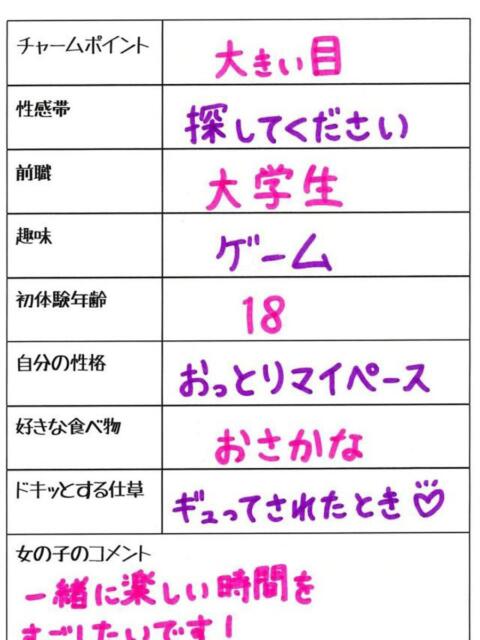 チャームポイント 大きい目
性感帯 探してください
前職 大学生
趣味 ゲーム
初体験年齢 18
自分の性格 おっとりマイペース
好きな食べ物 おさかな
ドキッとする仕草 ギュってされたとき♡
女の子のコメント
一緒に楽しい時間を
すごしたいです！